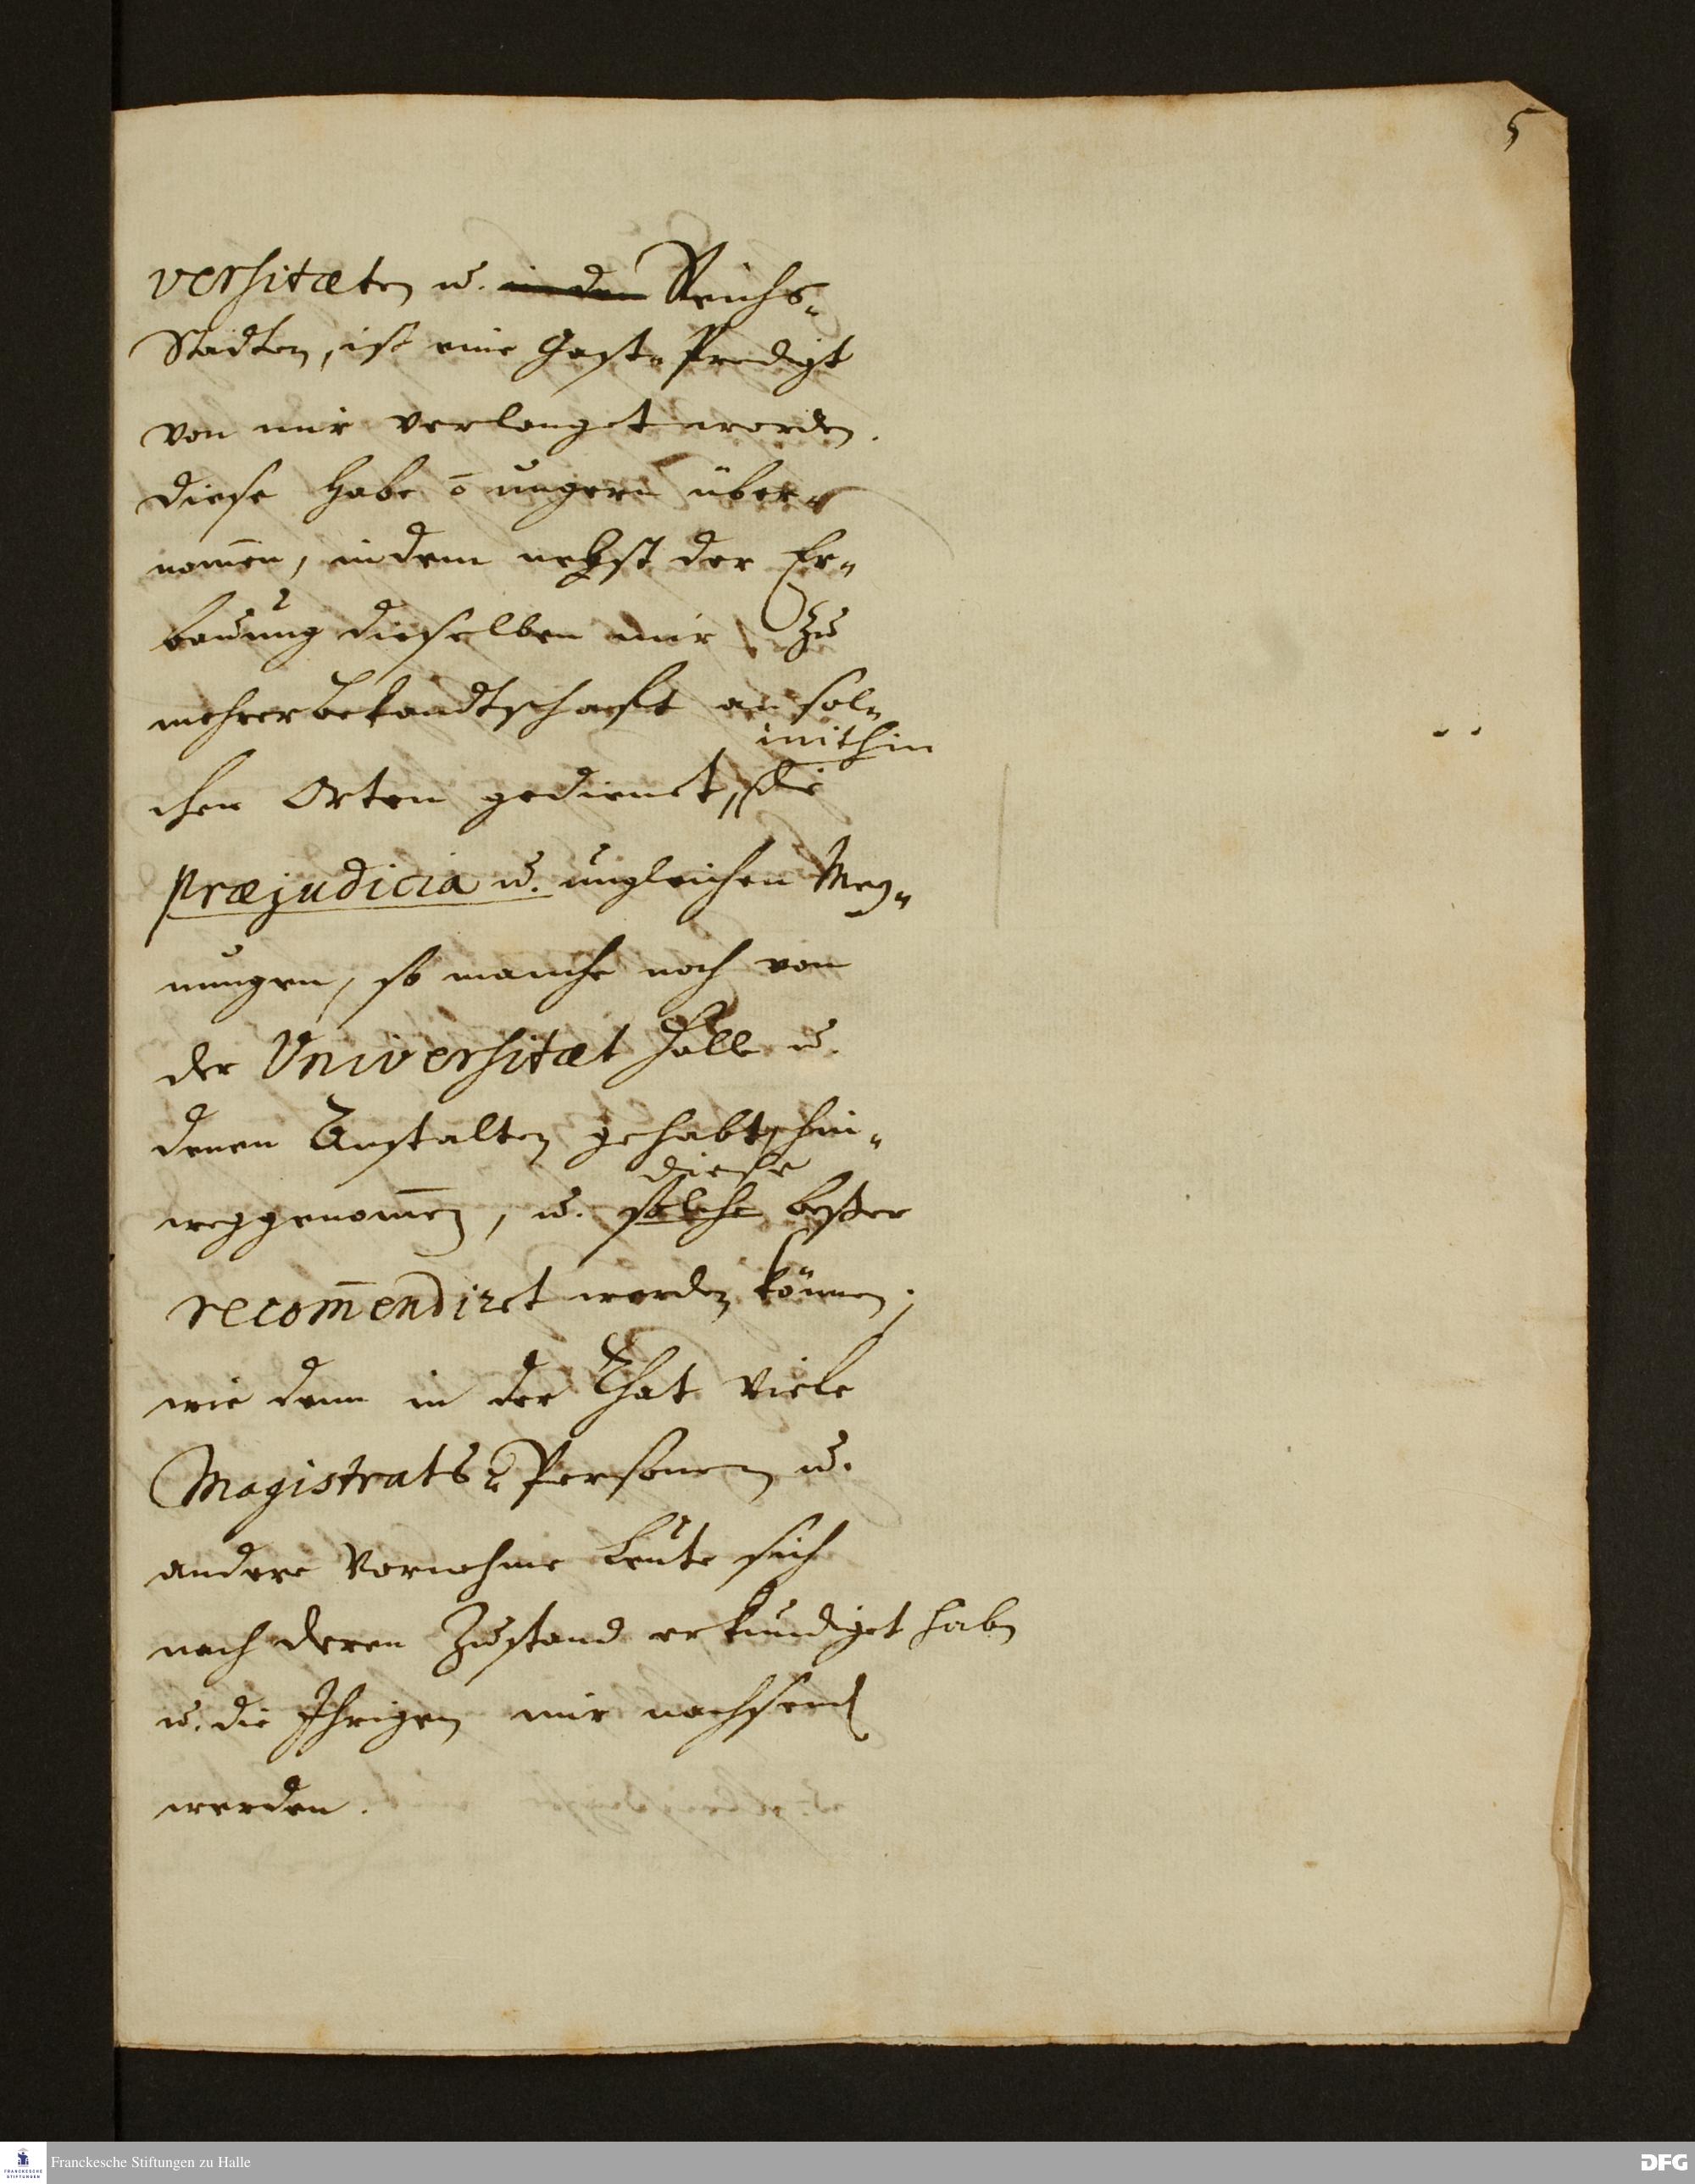 5
versitæten u. in den Reichs-
Städten, ist eine Gast-Predigt
von mir verlanget worden.
diese habe õ ungern über-
nom̄en, indem nebst der Er-
bauung dieselben mir zu
mehrer bekandtschafft an sol-
mithin
chen Orten gedienet, die
præjudicia u. ungleichen Mey-
nungen, so manche noch von
der Universitæt Halle u.
denen Anstalten gehabt, hin-
diese
weggenom̄en, u. solche beßer
recom̄endiret werden können;
wie denn in der That viele
Magistrats-Personen u.
andere Vornehme Leute sich
nach deren Zustand erkundiget haben
u. die Ihrigen mir nachsend
werden.
Franckesche Stiftungen zu Halle
FRANCKESCHE STIFTUNGEN
DFG